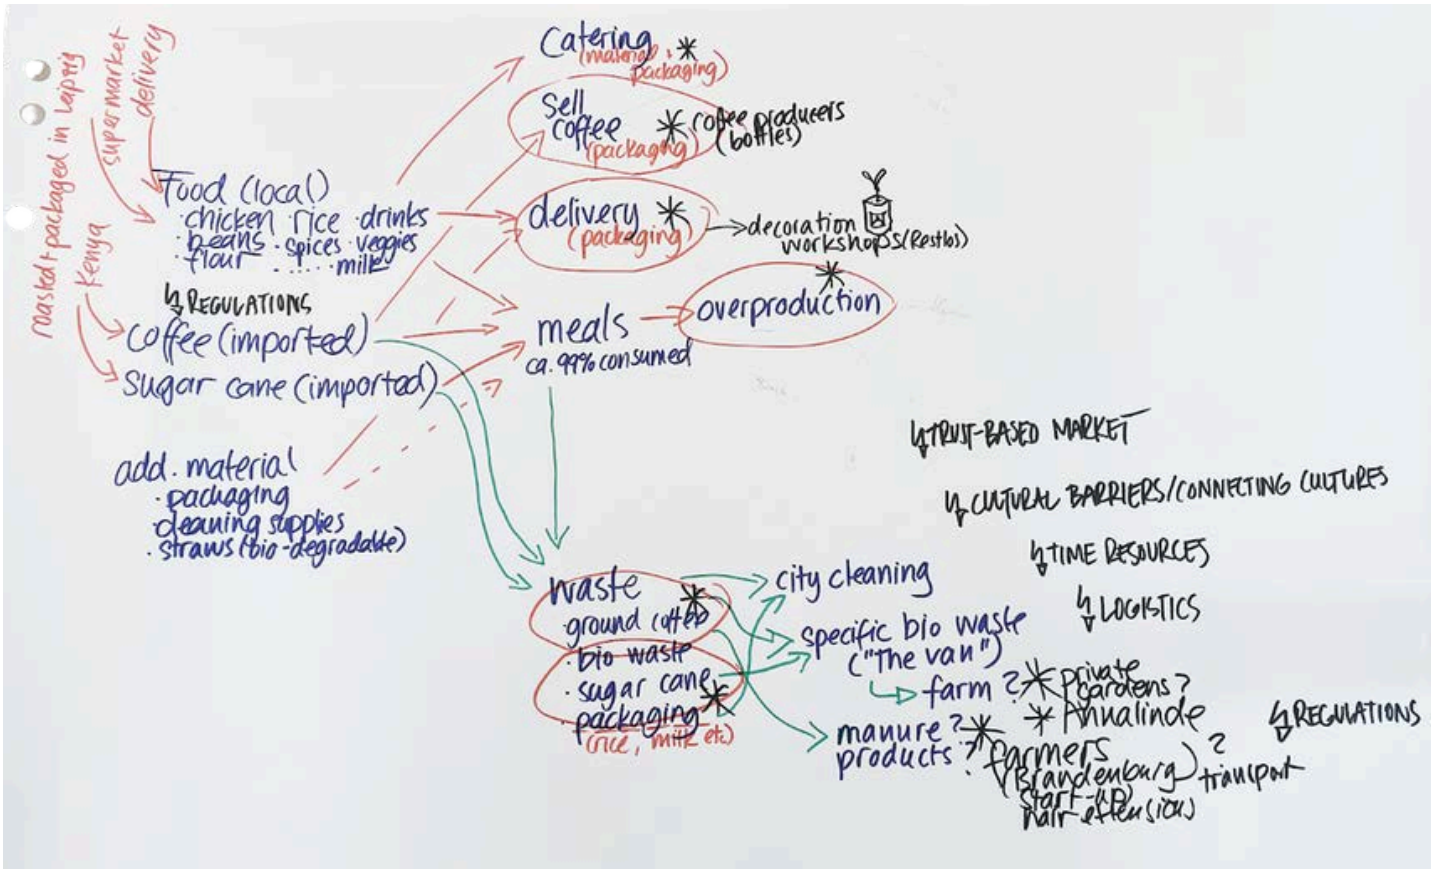 roasted + packaged in Leipzig
supermarket
delivery
Kenya
Food (local)
· chicken · rice · drinks
· beans · spices · veggies
· flour ..... · milk
REGULATIONS
coffee (imported)
sugar cane (imported)
add. material
· packaging
· cleaning supplies
· straws (bio-degradable)
Catering
(material +
packaging)
sell
coffee
(packaging)
coffee producers
(bottles)
delivery
(packaging)
decoration
workshops (Restlos)
meals
ca. 99% consumed
overproduction
waste
· ground coffee
· bio waste
· sugar cane
· packaging
(rice, milk etc)
city cleaning
specific bio waste
("The van")
farm ?
private
gardens ?
Annalinde
manure ?
products ?
farmers
(Brandenburg)
start-up)
hair extensions
?
transport
TRUST-BASED MARKET
CULTURAL BARRIERS/CONNECTING CULTURES
TIME RESOURCES
LOGISTICS
REGULATIONS